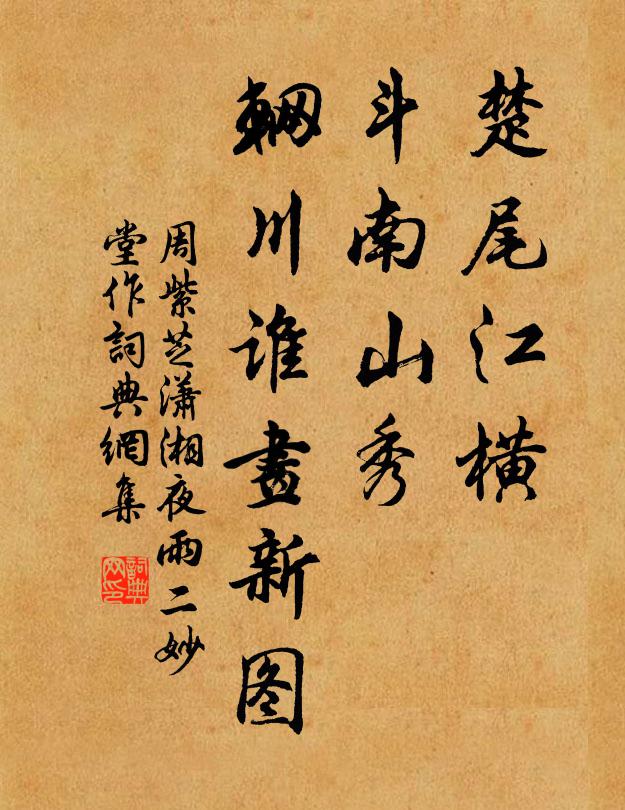 楚尾江横
斗南山秀
輞川谁畫新图
周紫芝瀟湘夜雨二妙
堂作詞典網集
詞典
网印